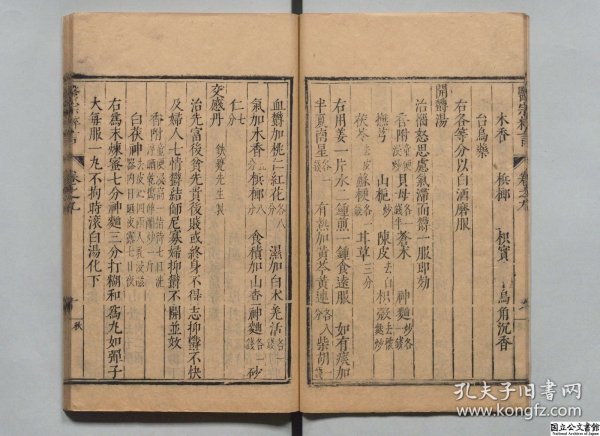 醫宗粹言 卷之九
木香 檳榔 枳實 烏角沉香
台烏藥
右各等分以白酒磨服
開鬱湯
治惱怒思慮氣滯而鬱一服即効
香附 貝母 蒼朮 神麯
撫芎 山梔 陳皮 枳殼
茯苓 蘇梗 甘草三分
右用姜一片水二鍾煎一鍾食遠服 如有痰加
半夏南星 有熱加黃芩黃連 柴胡
血鬱加桃仁紅花 濕加白朮羌活
氣加木香檳榔 食積加山查神麯 砂
仁七分
交感丹 鐵甕先生製
治先富後貧先貴後賤或終身不得志抑鬱不快
及婦人七情鬱結師尼寡婦抑鬱不開並效
香附
白茯神
右為末煉蜜七分神麯三分打糊和為丸如彈子
大每服一丸不拘時滾白湯化下
卷之九
孔夫子旧书网
www.kongfz.com
国立公文書館
National Archives of Japan